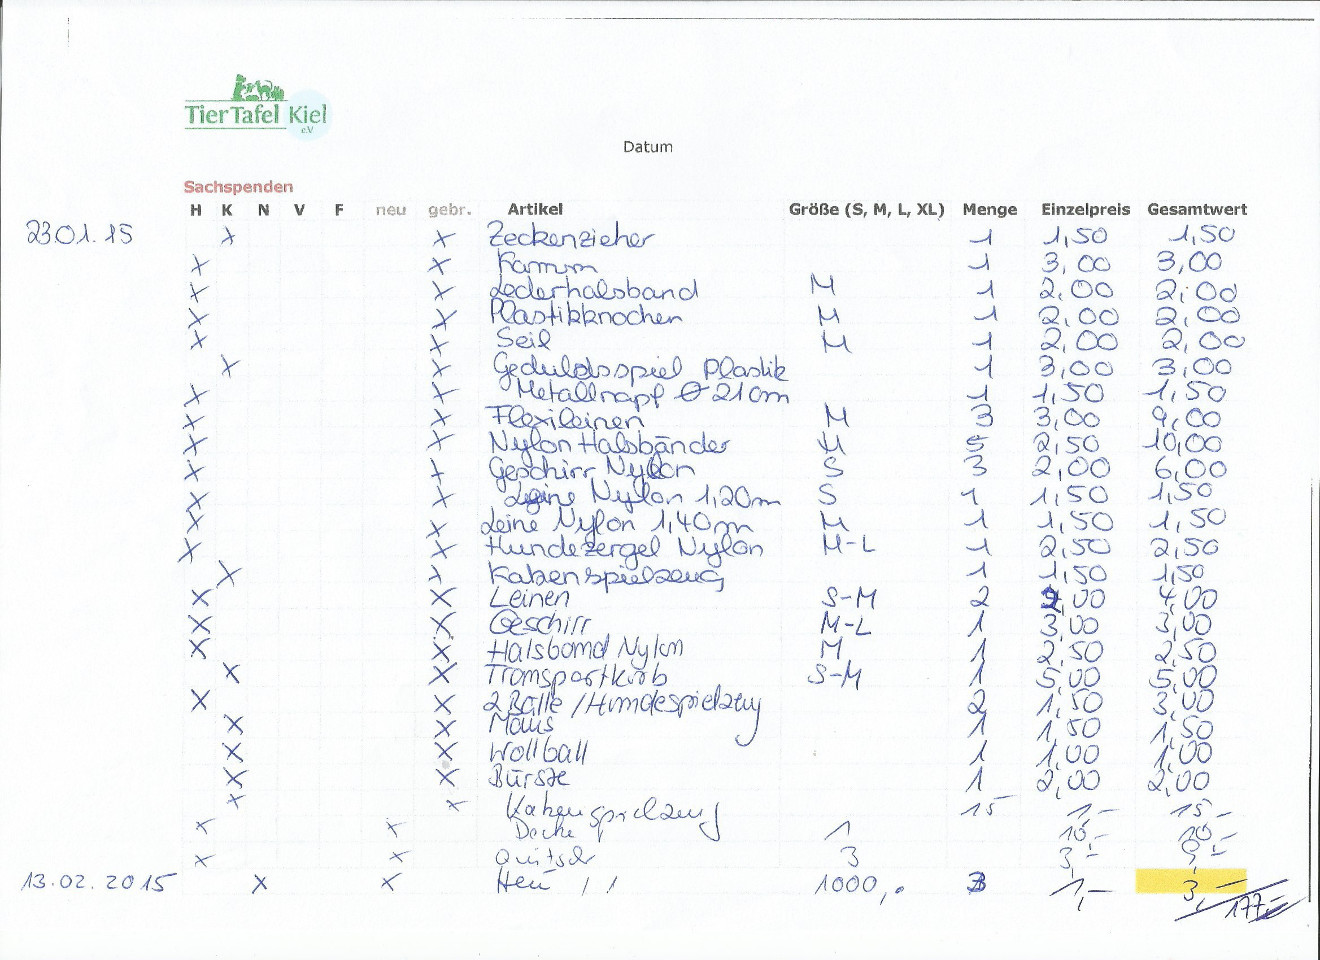 TierTafel Kiel
e.V
Datum
Sachspenden
H K N V F neu gebr. Artikel Größe (S, M, L, XL) Menge Einzelpreis Gesamtwert
23.01.15 x x Zeckenzieher 1 1,50 1,50
x x Kamm 1 3,00 3,00
x x Lederhalsband M 1 2,00 2,00
x x Plastikknochen M 1 2,00 2,00
x x Seil M 1 2,00 2,00
x x Geduldsspiel Plastik 1 3,00 3,00
x x Metallnapf Ø 21cm 1 1,50 1,50
x x Flexileinen M 3 3,00 9,00
x x Nylon Halsbänder M 5 2,50 10,00
x x Geschirr Nylon S 3 2,00 6,00
x x Leine Nylon 1,20m S 1 1,50 1,50
x x Leine Nylon 1,40m M 1 1,50 1,50
x x Hundezergel Nylon M-L 1 2,50 2,50
x x Katzenspielzeug 1 1,50 1,50
x x Leinen S-M 2 2,00 4,00
x x Geschirr M-L 1 3,00 3,00
x x Halsband Nylon M 1 2,50 2,50
x x Transportkorb S-M 1 5,00 5,00
x x 2 Bälle / Hundespielzeug 2 1,50 3,00
x x Maus 1 1,50 1,50
x x Wollball 1 1,00 1,00
x x Bürste 1 2,00 2,00
x x Katzenspielzeug 15 1,- 15,-
x x Decke 1 10,- 10,-
x x Quitsch 3 3,- 9,-
13.02.2015 x x Heu 1000,. 3 1,- 3,-
177,-